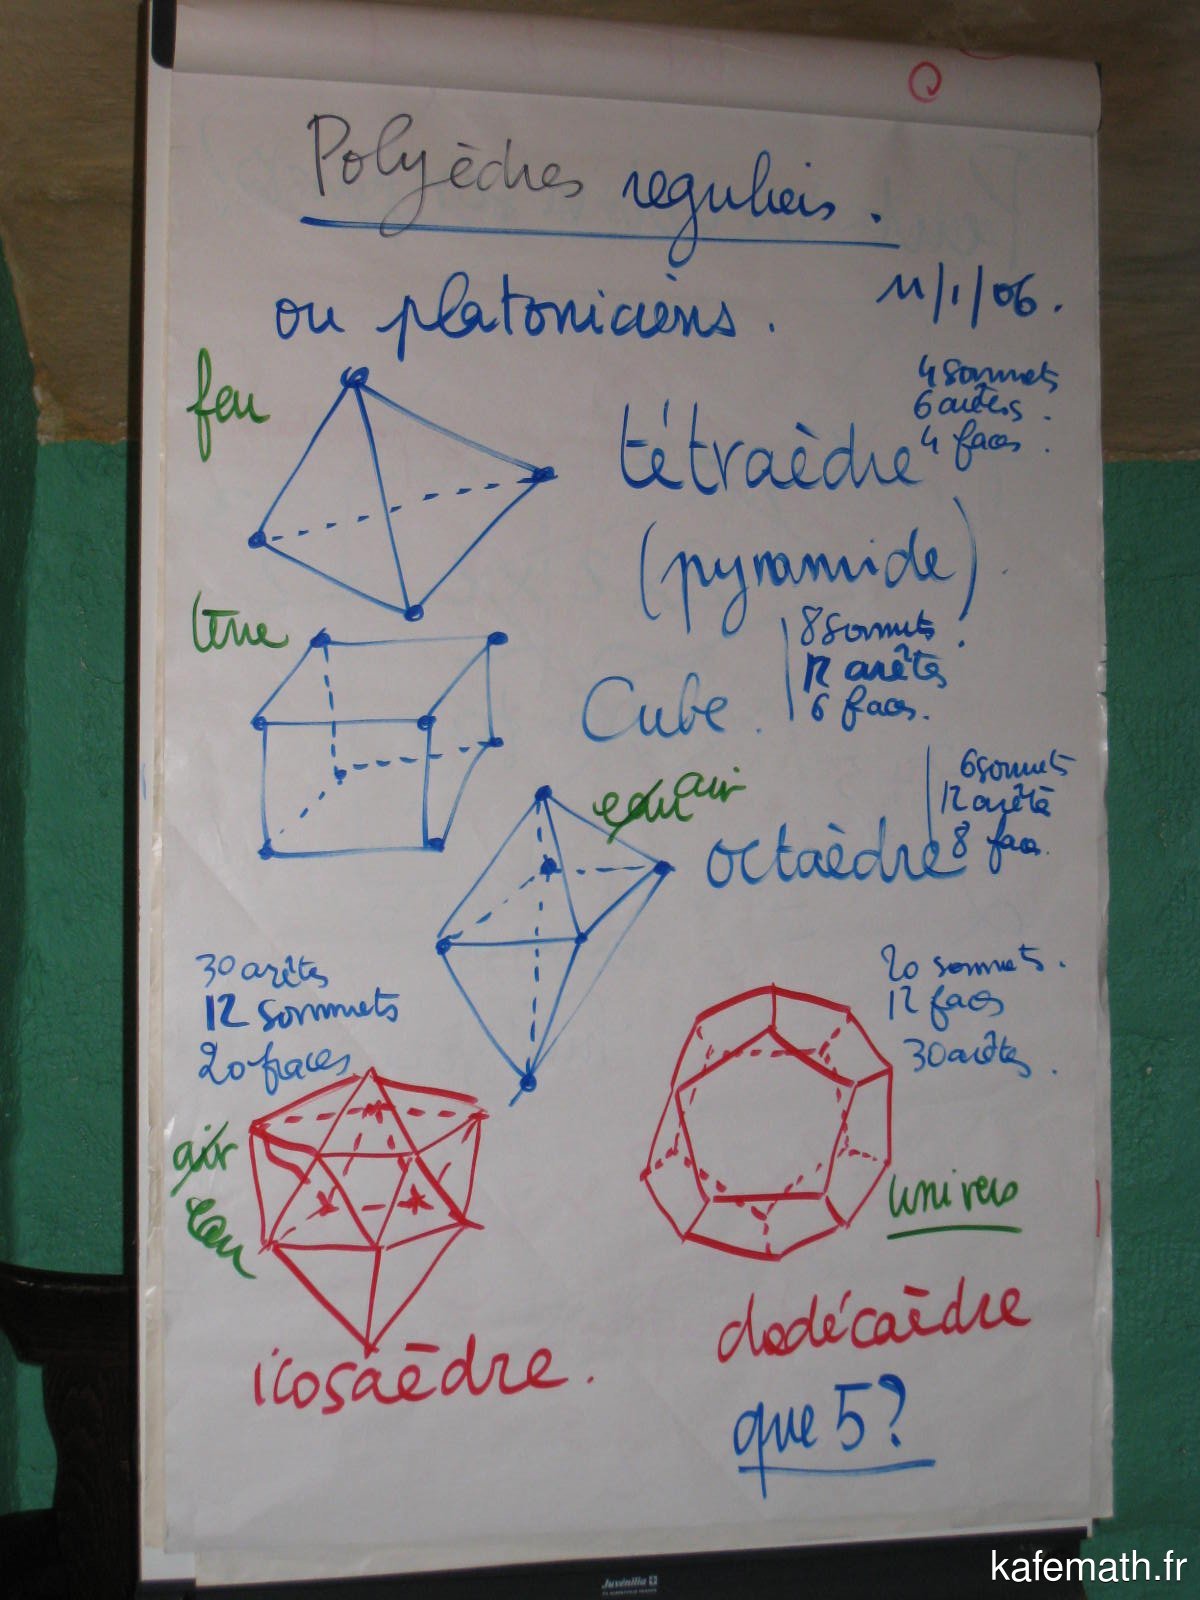 Polyèdres reguliers.
ou platoniciens.
11/1/06.
feu
4 sommets
6 arêtes.
4 faces.
tétraèdre
(pyramide)
terre
8 sommets.
12 arêtes
6 faces.
Cube.
eau air
6 sommets
12 arêtes
8 faces.
octaèdre
30 arêtes
12 sommets
20 faces
20 sommets.
12 faces
30 arêtes.
air
eau
univers
icosaèdre.
dodécaèdre
que 5?
Juvénilia
kafemath.fr